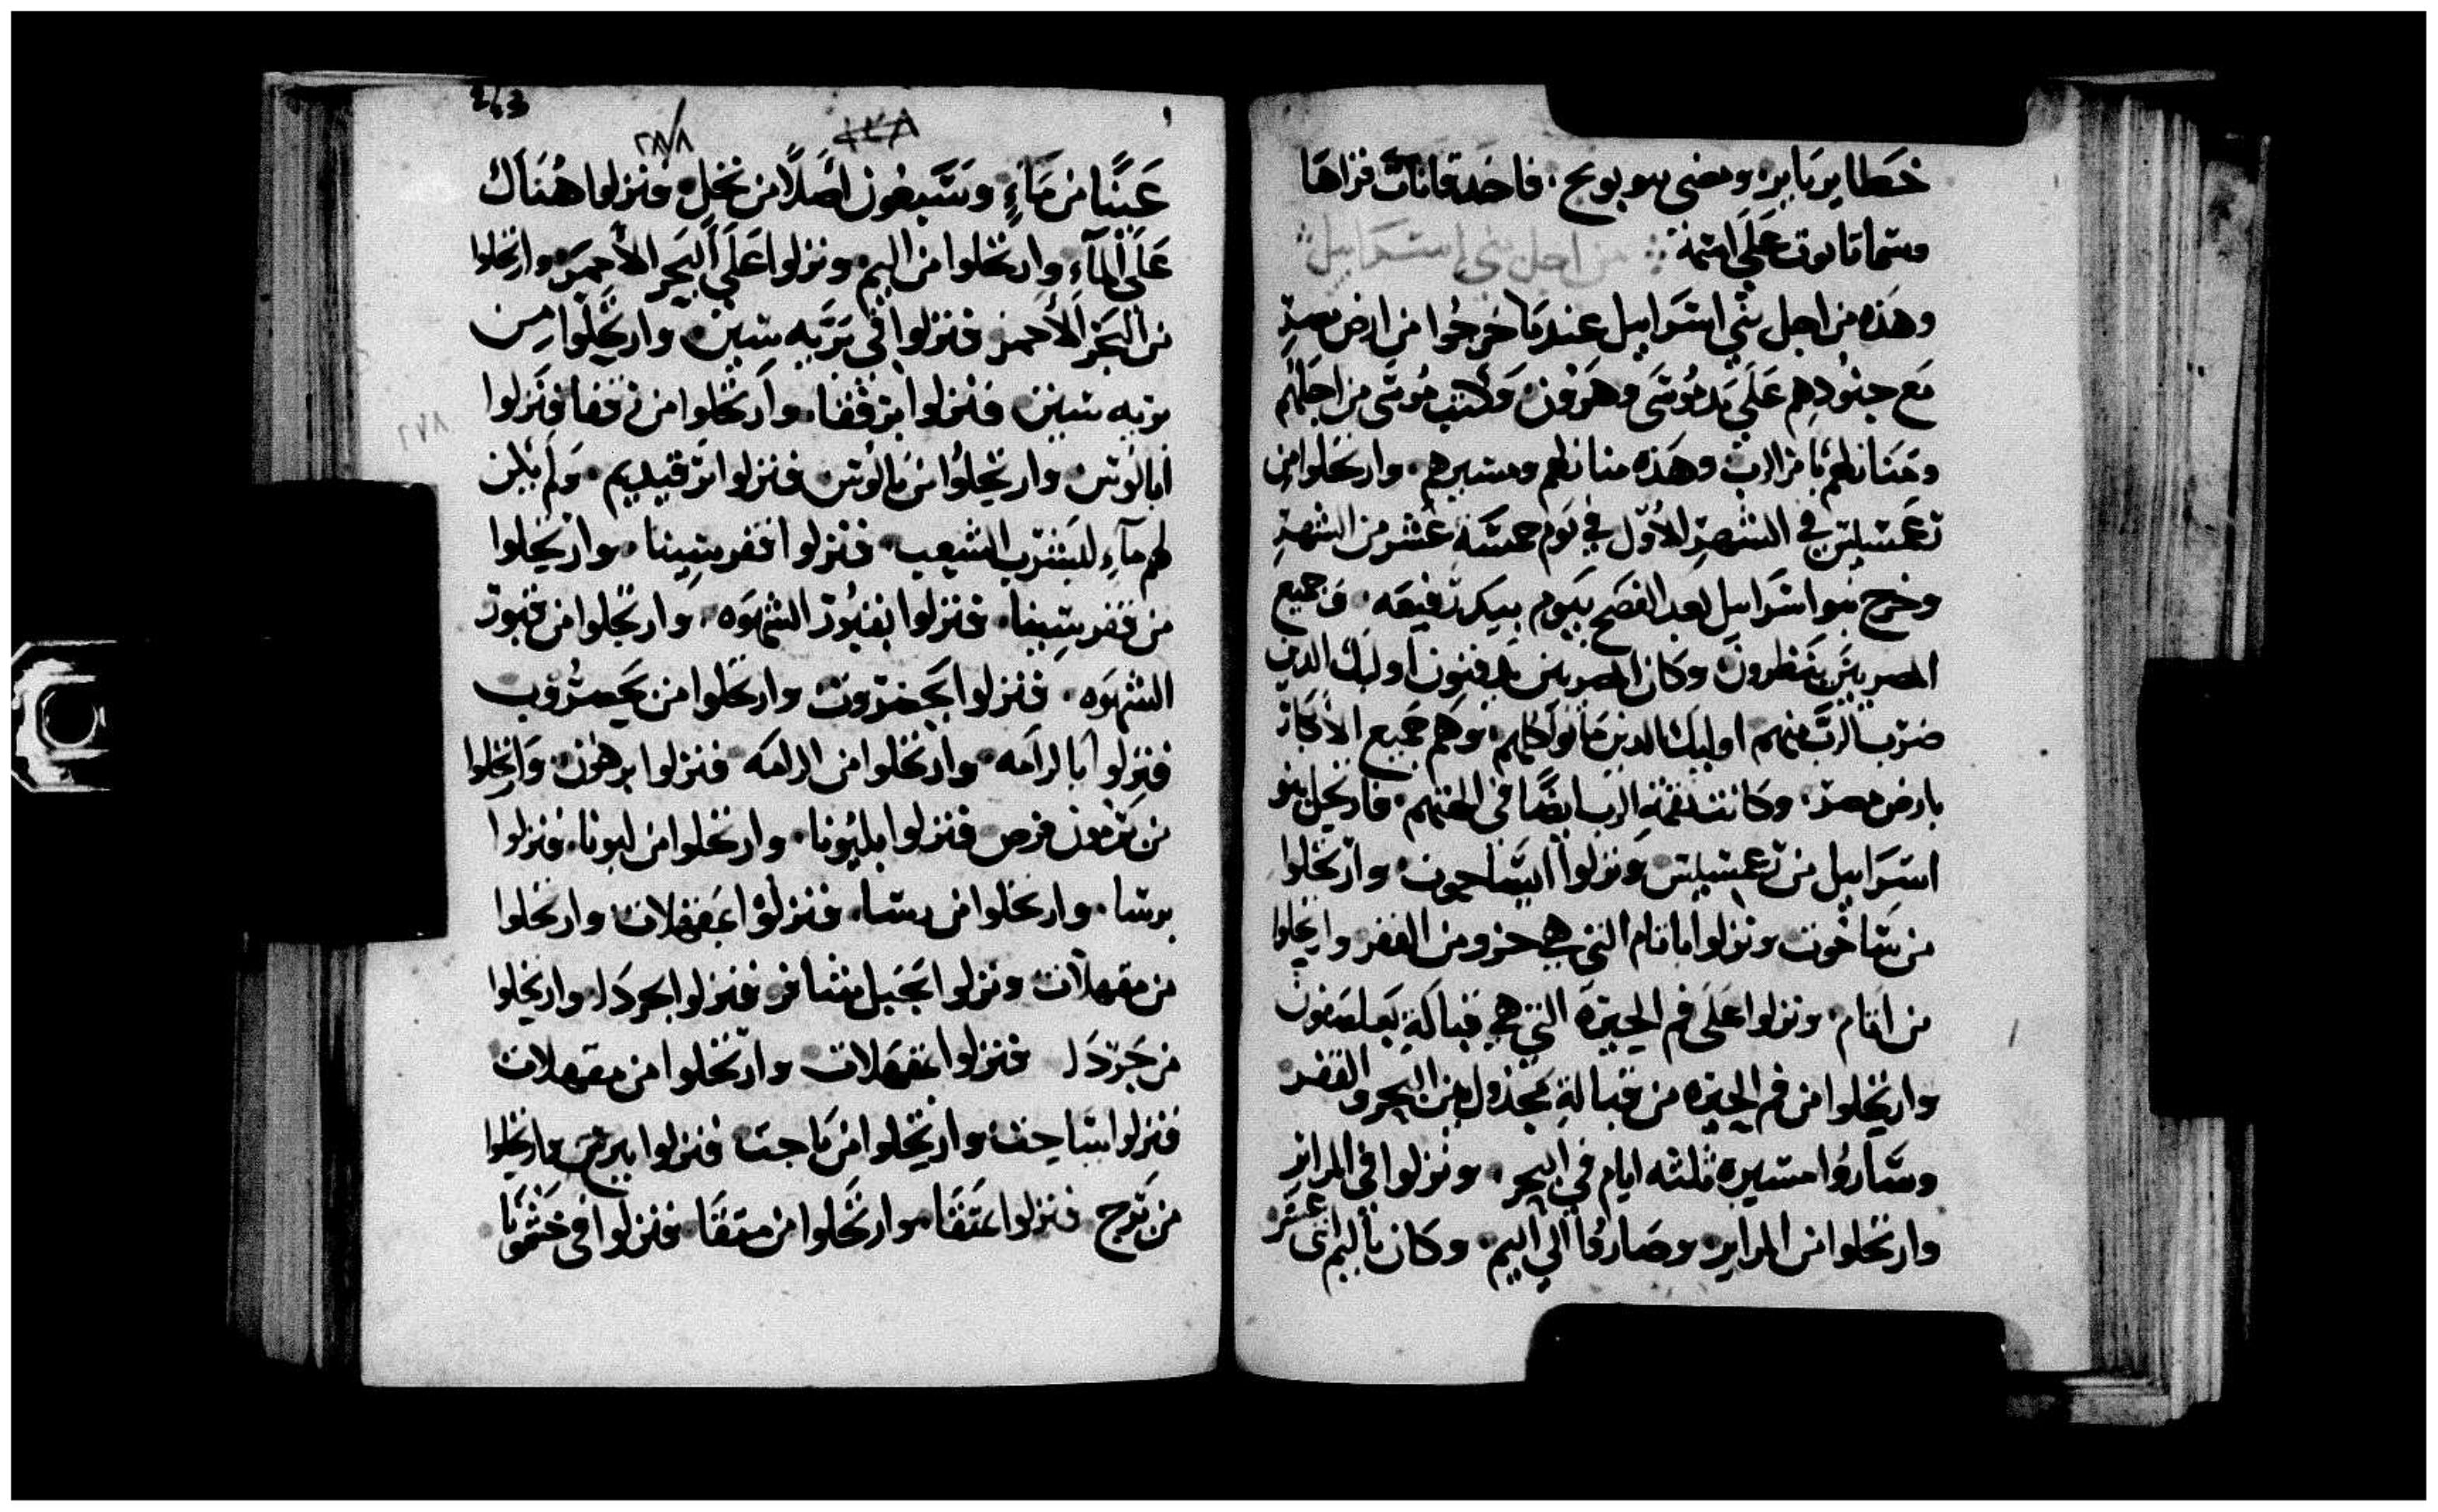 خطاير ياير ومضى بنو بوبح فاخد قانات فزاها
وسما قانوت على اسمة من اجل بني استراييل
وهذه من اجل بني استراييل عندما خرجوا من ارض مصر
مع جنودهم على يد موسى وهرون وكتب موسى من اجلهم
ومنازلهم بامر الرب وهذه منازلهم ومسيرهم وارتحلوا من
رعمسيس في الشهر الأول في يوم خمسة عشر من الشهر
وخرج بنو اسراييل بعد الفصح بيوم بيد رفيعه وجميع
المصريين ينظرون وكان المصريين يدفنون اوليك الدين
ضرب الرب منهم اوليك الدين ماتوا كلهم وهم جميع الأبكار
بارض مصر وكانت نقمة الرب ايضًا في الهتهم فارتحل بنو
استراييل من رعمسيس ونزلوا الساحوت وارتحلوا
من ساخوت ونزلوا باتام التي هي جزو من القفر وارتحلوا
من اتام ونزلوا على فم الحيرة التي هي قبالة بعلصفون
وارتحلوا من فم الحيره من قبالة مجدول بين البحر والقفر
وساروا مسيرة ثلثه ايام في البحر ونزلوا في المراير
وارتحلوا من المراير وصاروا الي اليم وكان باليم اثنى عشر
243
٢٨٨
عينًا من ماءٍ وسبعون اصلًا من نخل ونزلوا هناك
على الماء وارتحلوا من اليم ونزلوا على البحر الأحمر وارتحلوا
من البحر الأحمر فنزلوا في بريه سين وارتحلوا من
بريه سين فنزلوا برفقا وارتحلوا من رفقا فنزلوا
٢٧٨
بالوس وارتحلوا من بالوس فنزلوا برفيديم ولم يكن
لهم ماء ليشرب الشعب فنزلوا قفر سينا وارتحلوا
من قفر سينا فنزلوا بقبور الشهوه وارتحلوا من قبور
الشهوه فنزلوا بحضروت وارتحلوا من حصروت
فنزلوا بالرامه وارتحلوا من الرامه فنزلوا برمون وارتحلوا
من رمون فرص فنزلوا بلبونا وارتحلوا من لبونا فنزلوا
برسا وارتحلوا من رسا فنزلوا بمقهلات وارتحلوا
من مقهلات ونزلوا بجبل شافر فنزلوا بحردا وارتحلوا
من جردا فنزلوا بمقهلات وارتحلوا من مقهلات
فنزلوا بتاحت وارتحلوا من تاحت فنزلوا بترح وارتحلوا
من ترح فنزلوا بمتقا وارتحلوا من متقا فنزلوا في حشمونا